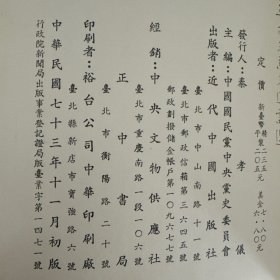 定價 新臺幣精裝二三五元 美金七.八〇元
發行人：秦孝儀
主編：中國國民黨中央黨史委員會
出版者：近代中國出版社
臺北市中山南路十一號
臺北市郵政信箱第三六四五號
郵政劃撥儲金帳戶第一〇九六七號
經銷：中央文物供應社
臺北市重慶南路一段一〇六號
正中書局
臺北市衡陽路二十號
印刷者：裕台公司中華印刷廠
臺北縣新店市寶強路六號
中華民國七十三年十一月初版
行政院新聞局出版事業登記證局版臺業字第一四七一號